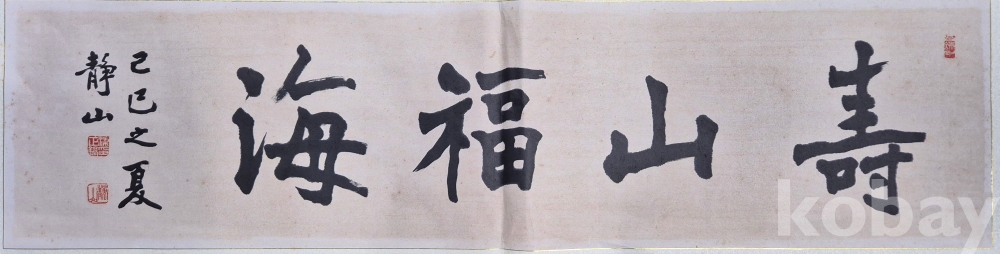 壽山福海
己巳之夏
靜山
kobay